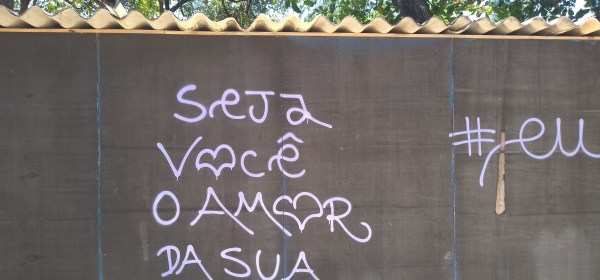 SeJa
VOCÊ
O AMOR
DA SUA
#eu